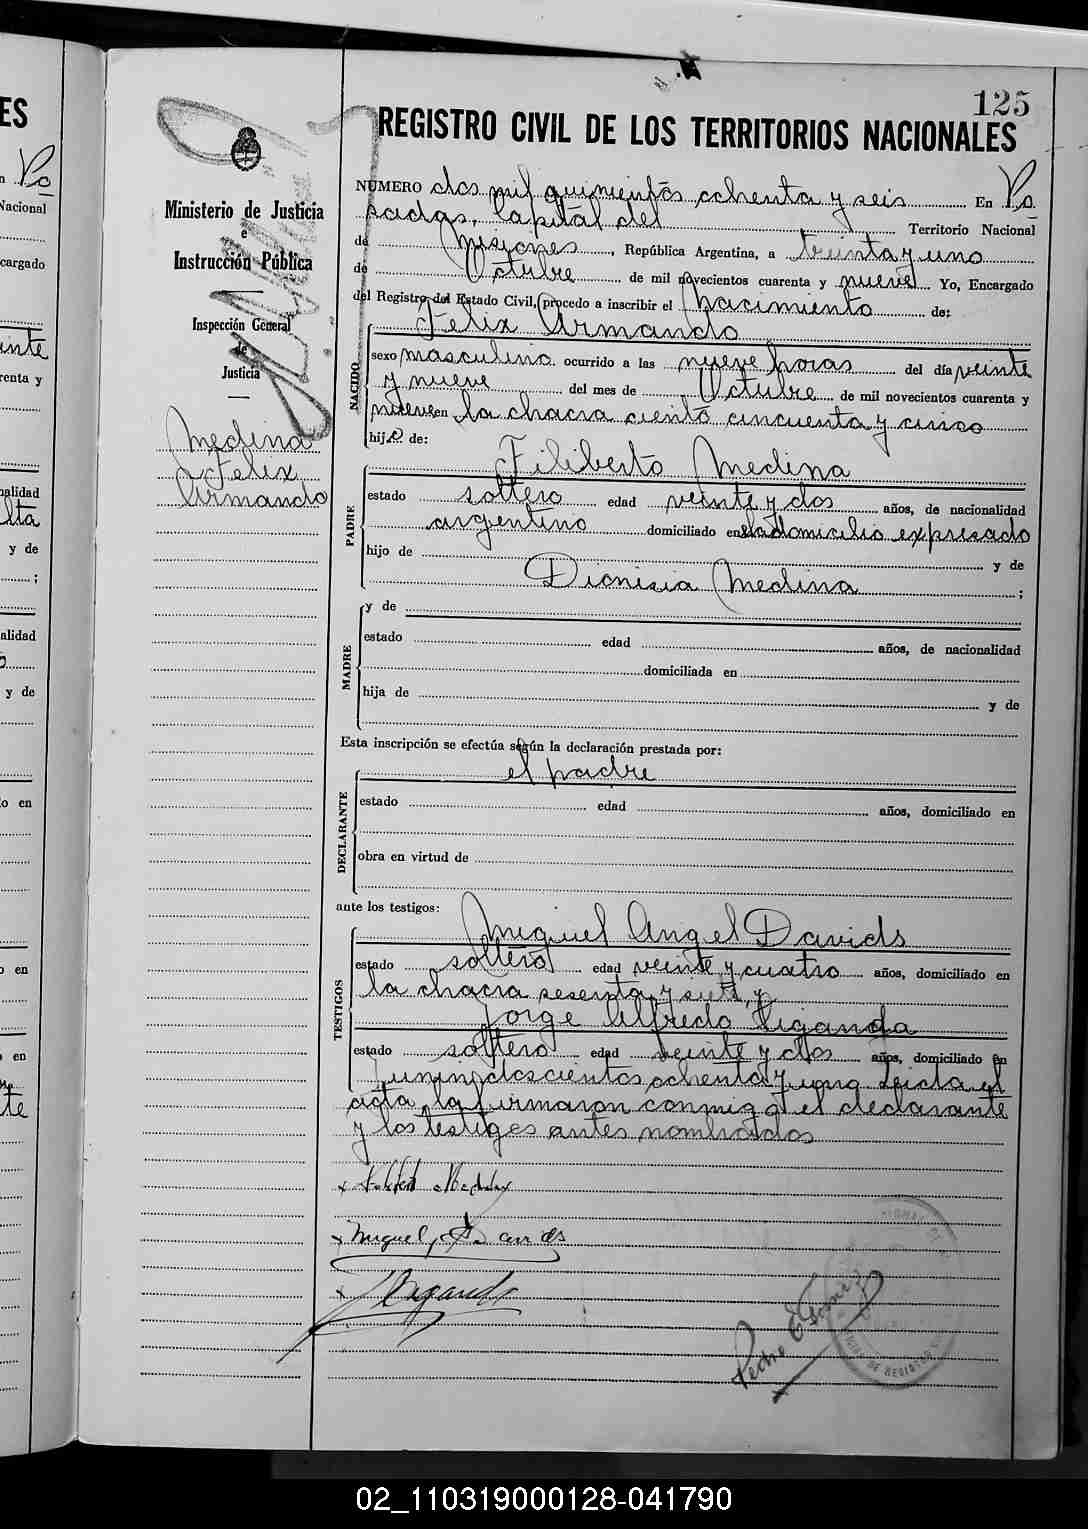 125
REGISTRO CIVIL DE LOS TERRITORIOS NACIONALES
Ministerio de Justicia
e
Instrucción Pública
Inspección General
de
Justicia
Medina
Felix
Armando
NUMERO dos mil quinientos ochenta y seis En Po
sadas, Capital del Territorio Nacional
de Misiones, República Argentina, a treinta y uno
de Octubre de mil novecientos cuarenta y nueve Yo, Encargado
del Registro del Estado Civil, procedo a inscribir el nacimiento de:
NACIDO
Felix Armando
sexo masculino ocurrido a las nueve horas del día veinte
y nueve del mes de Octubre de mil novecientos cuarenta y
nueve en la chacra ciento cincuenta y cinco
hijo de:
PADRE
Filiberto Medina
estado soltero edad veinte y dos años, de nacionalidad
argentino domiciliado en el domicilio expresado
hijo de y de
Dionisia Medina ;
MADRE
y de
estado edad años, de nacionalidad
domiciliada en
hija de y de
Esta inscripción se efectúa según la declaración prestada por:
DECLARANTE
el padre
estado edad años, domiciliado en
obra en virtud de
ante los testigos:
TESTIGOS
Miguel Angel Davids
estado soltero edad veinte y cuatro años, domiciliado en
la chacra sesenta y siete y
Jorge Alfredo
estado soltero edad veinte y dos años, domiciliado en
Junin doscientos ochenta y uno Leida el
acta la firmaron conmigo el declarante
y los testigos antes nombrados
Miguel A. Davids
Pedro E Gomez
02_110319000128-041790